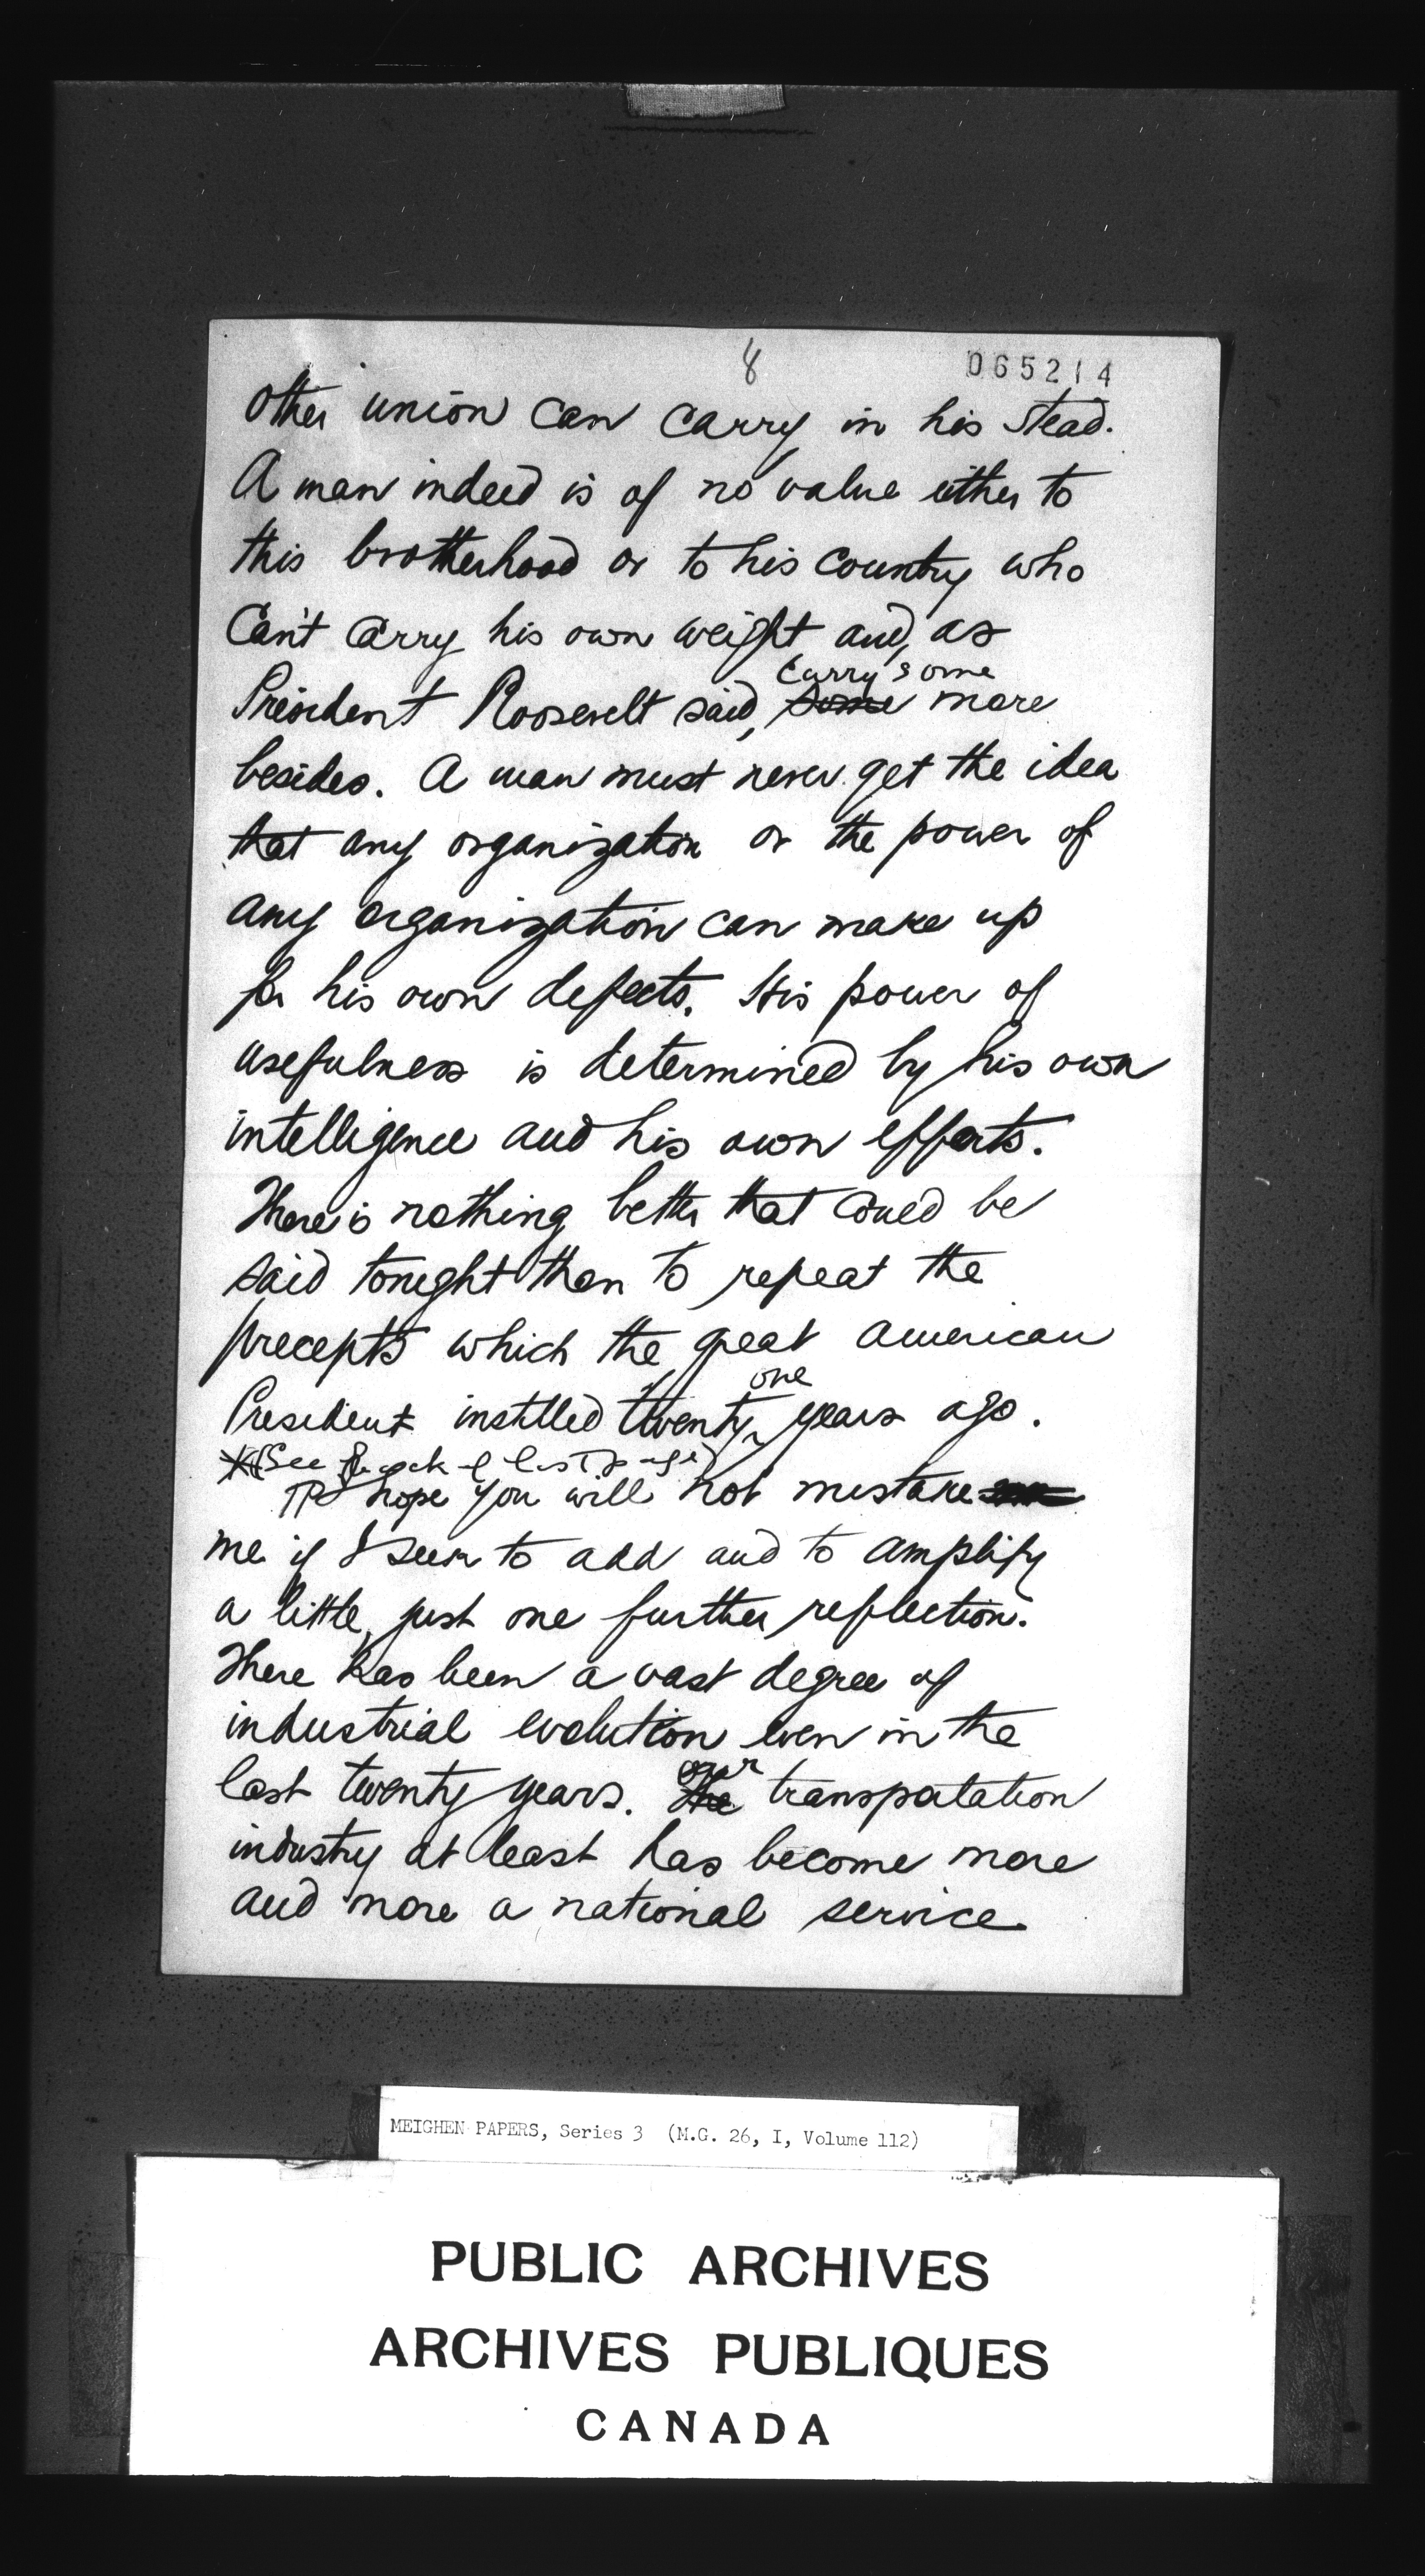 8
065214
other union can carry in his stead.
A man indeed is of no value either to
this brotherhood or to his country who
Can't carry his own weight and, as
carry some
President Roosevelt said, some more
besides. A man must never get the idea
that any organization or the power of
any organization can make up
for his own defects. His power of
usefulness is determined by his own
intelligence and his own efforts.
There is nothing better that could be
said tonight than to repeat the
precepts which the great American
one
President instilled twenty years ago.
(See back of last page)
I hope you will not mistake
me if I seem to add and to amplify
a little, just one further reflection.
There has been a vast degree of
industrial evolution even in the
our
last twenty years. The transportation
industry at least has become more
and more a national service
MEIGHEN PAPERS, Series 3 (M.G. 26, I, Volume 112)
PUBLIC ARCHIVES
ARCHIVES PUBLIQUES
CANADA